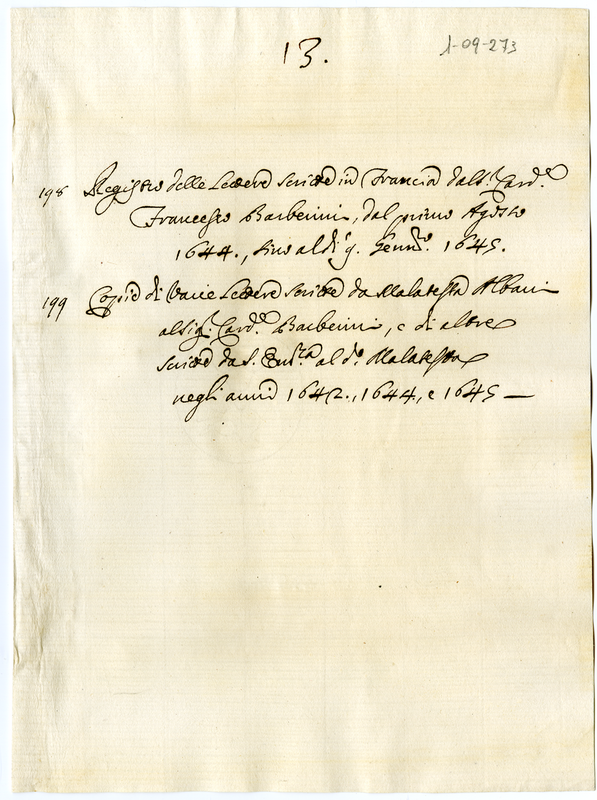 13.
1-09-273
198 Registro delle Lettere scritte in Francia dal S.r Card.e
Francesco Barberini, dal primo Agosto
1644., sino al di 9. Genn.o 1645.
199 Copie di Varie Lettere scritte da Malatesta Albani
al Sig.r Card.e Barberini, e di altre
scritte da S. Em.za al d.o Malatesta
negli anni 1642., 1644, e 1645 —